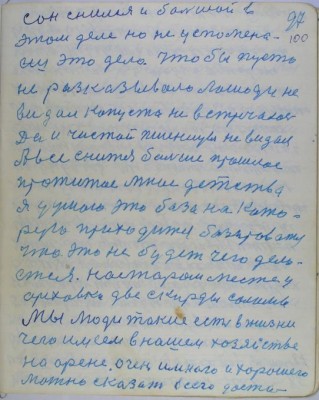 сон снился и большой в 97
этом деле но не успомена- 100
ощ это дело. что бы пусто
не разказывало Лошоди не
видал капуста не встречалос
Да и чистой пшеницы не видал
А все снится болше прошлое
прожитое мной детства
Я думаю это база на като-
рую приходится базировать
что это не будет чего дела-
ется. На старом месте у
ореховка две скирды соломы
Мы люди такие есть в жизни
чего имеем в нашем хозяйстве
на арене. очен много и хорошего
можно сказат всего дости-